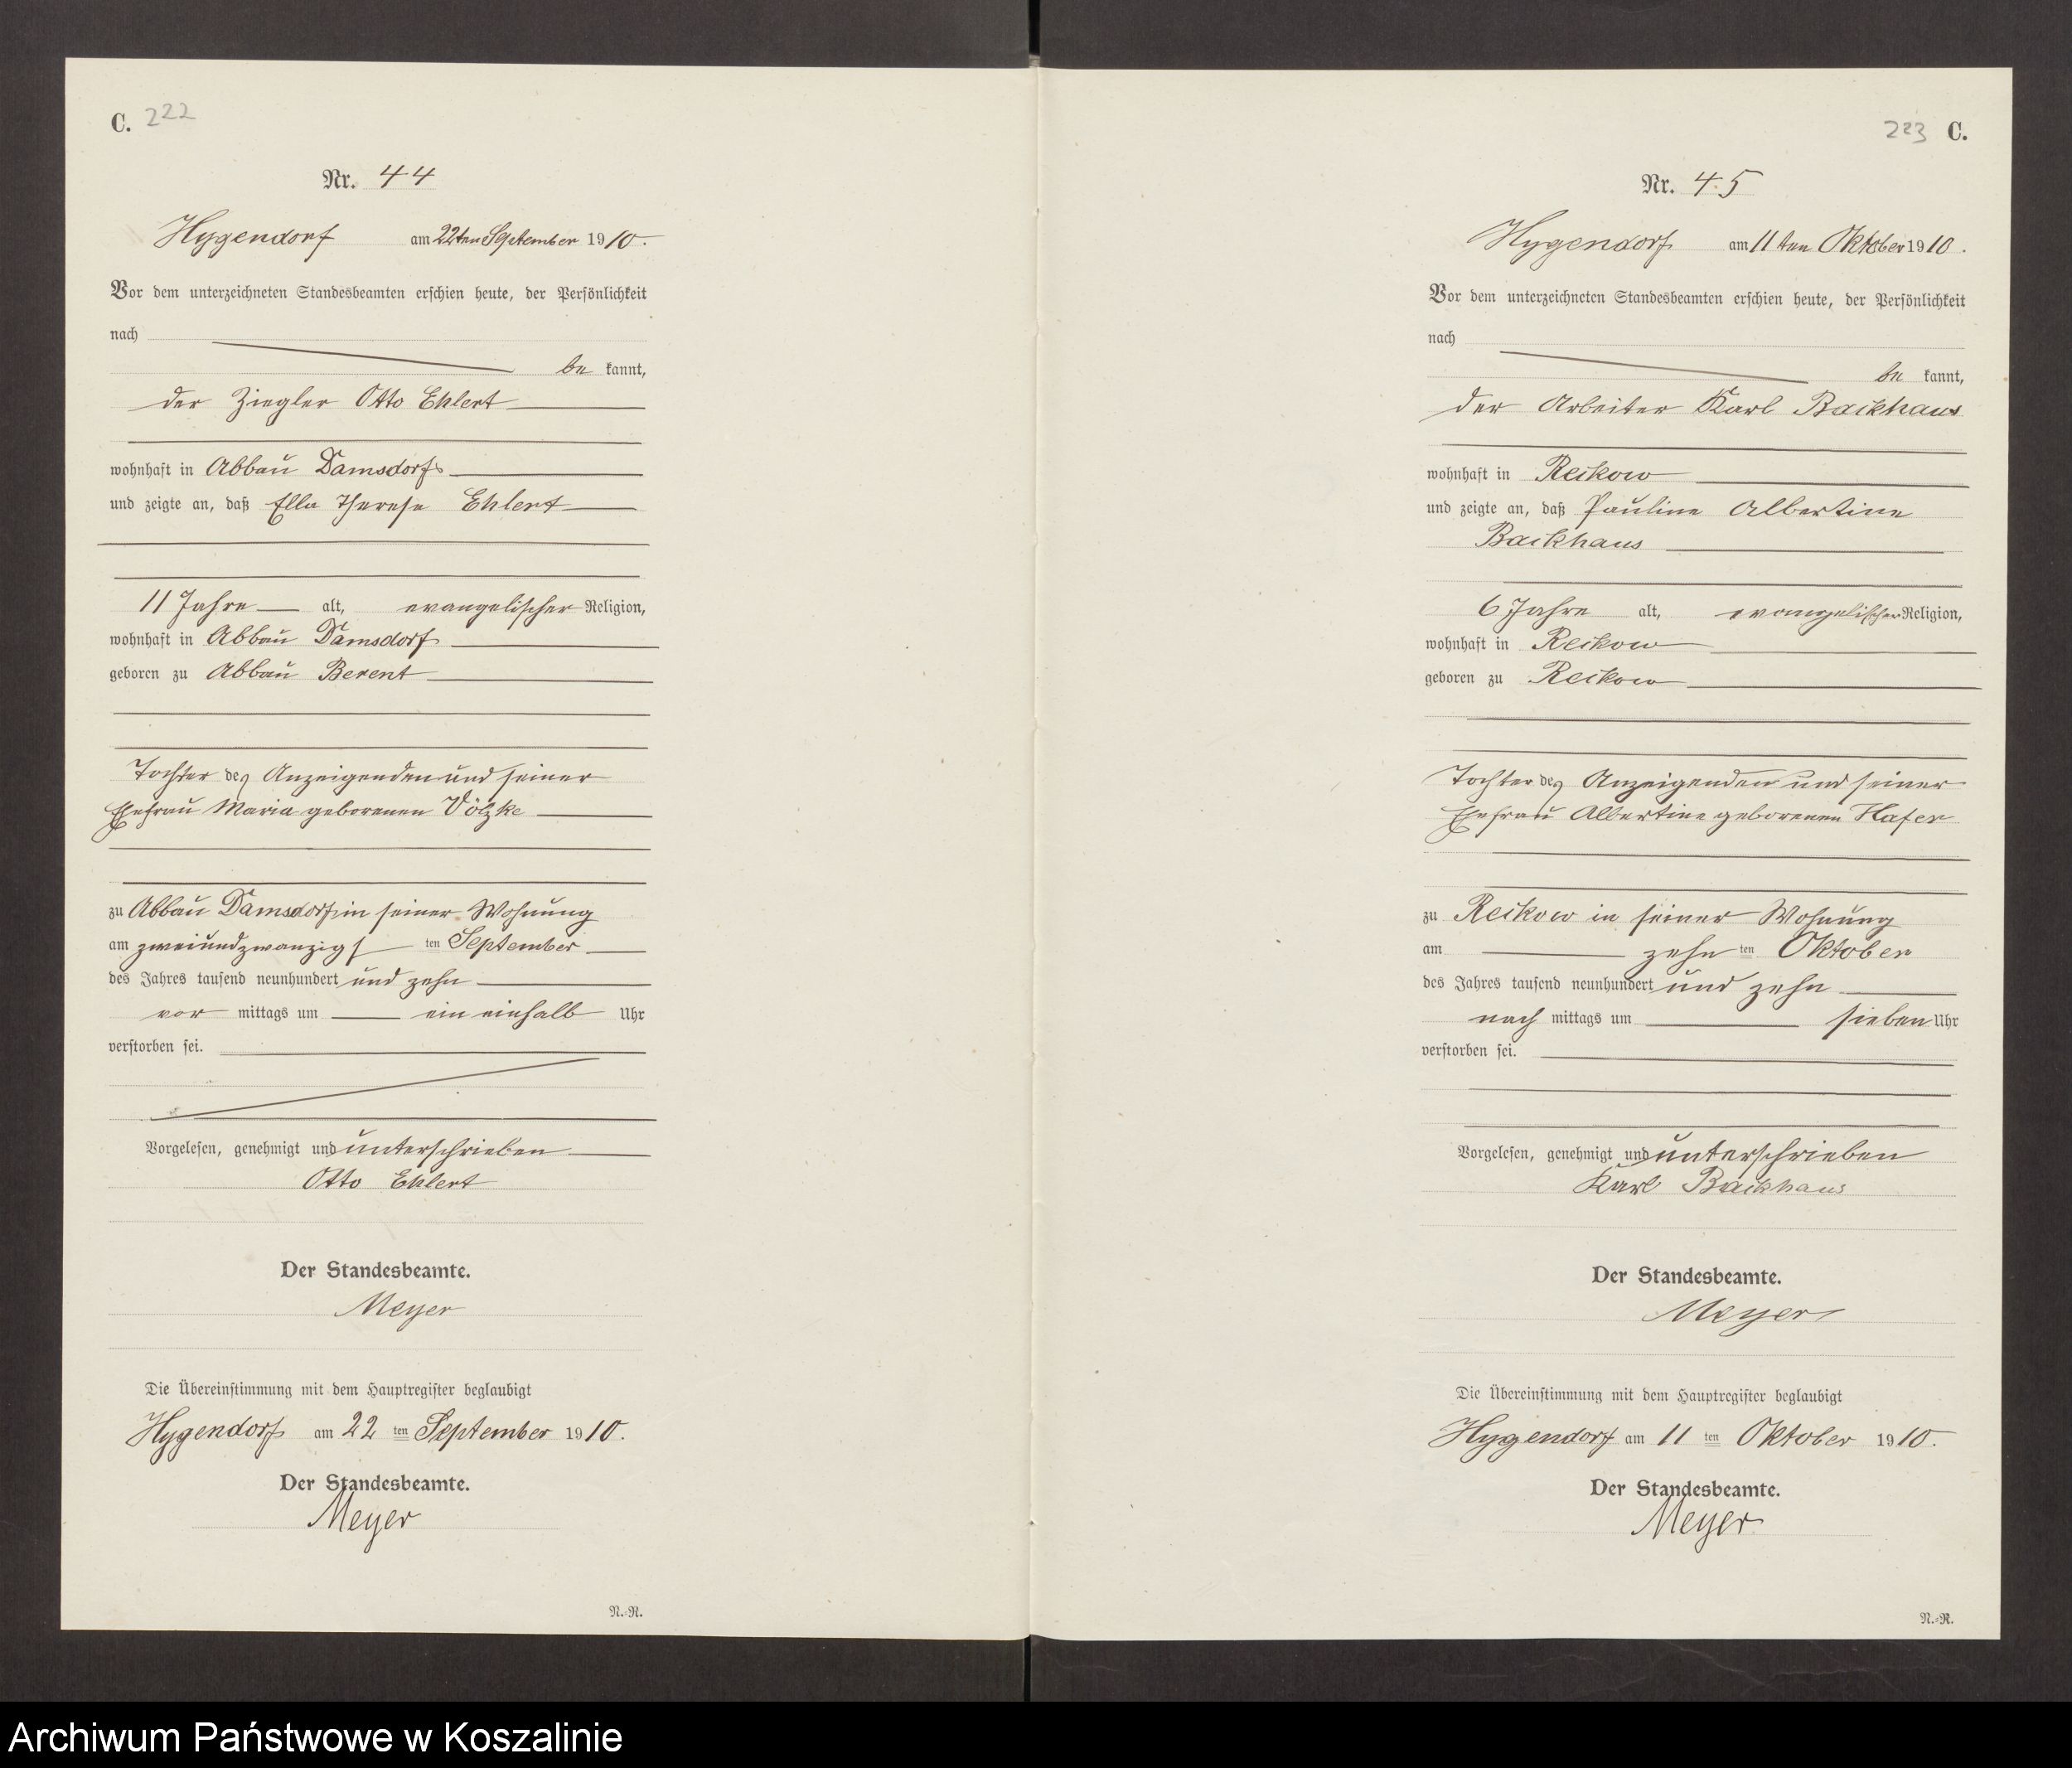 C. 222
Nr. 44
Hygendorf am 22ten September 1910.
Vor dem unterzeichneten Standesbeamten erschien heute, der Persönlichkeit
nach
be kannt,
der Ziegler Otto Ehlert
wohnhaft in Abbau Damsdorf
und zeigte an, daß Ella Therese Ehlert
11 Jahre alt, evangelischer Religion,
wohnhaft in Abbau Damsdorf
geboren zu Abbau Berent
Tochter des Anzeigenden und seiner
Ehefrau Maria geborenen Völzke
zu Abbau Damsdorf in seiner Wohnung
am zweiundzwanzigs ten September
des Jahres tausend neunhundert und zehn
vor mittags um ein einhalb Uhr
verstorben sei.
Vorgelesen, genehmigt und unterschrieben
Otto Ehlert
Der Standesbeamte.
Meyer
Die Übereinstimmung mit dem Hauptregister beglaubigt
Hygendorf am 22 ten September 1910.
Der Standesbeamte.
Meyer
N.-R.
223 C.
Nr. 45
Hygendorf am 11ten Oktober 1910.
Vor dem unterzeichneten Standesbeamten erschien heute, der Persönlichkeit
nach
be kannt,
der Arbeiter Karl Backhaus
wohnhaft in Reikow
und zeigte an, daß Pauline Albertine
Backhaus
6 Jahre alt, evangelischer Religion,
wohnhaft in Reikow
geboren zu Reikow
Tochter des Anzeigenden und seiner
Ehefrau Albertine geborenen Hafer
zu Reikow in seiner Wohnung
am zehn ten Oktober
des Jahres tausend neunhundert und zehn
nach mittags um sieben Uhr
verstorben sei.
Vorgelesen, genehmigt und unterschrieben
Karl Backhaus
Der Standesbeamte.
Meyer
Die Übereinstimmung mit dem Hauptregister beglaubigt
Hygendorf am 11 ten Oktober 1910.
Der Standesbeamte.
Meyer
N.-R.
Archiwum Państwowe w Koszalinie